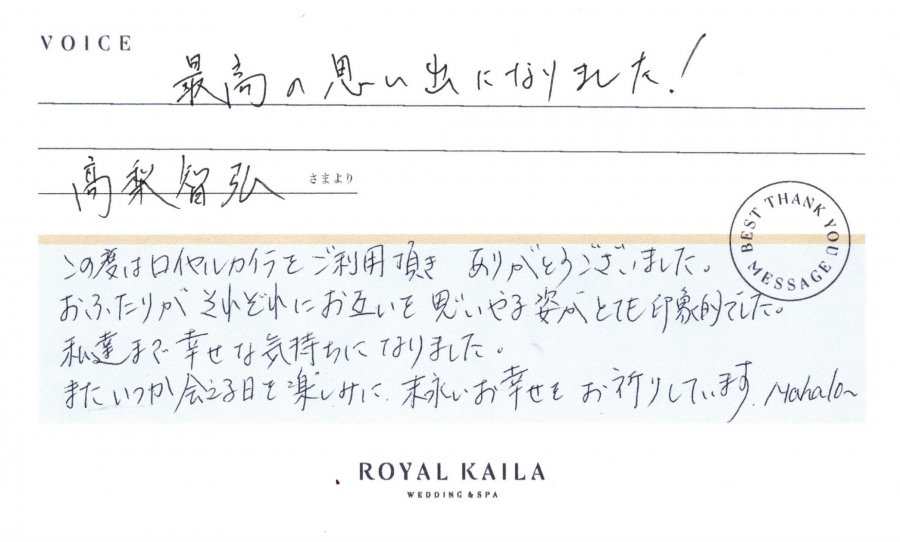 VOICE
最高の思い出になりました!
高梨智弘 さまより
BEST THANK YOU MESSAGE
この度はロイヤルカイラをご利用頂き ありがとうございました。
おふたりが それぞれにお互いを 思いやる姿が とても 印象的でした。
私達まで 幸せな気持ちに なりました。
またいつか 会える日を 楽しみに、末永いお幸せを お祈りしています。Mahalo~
ROYAL KAILA
WEDDING & SPA